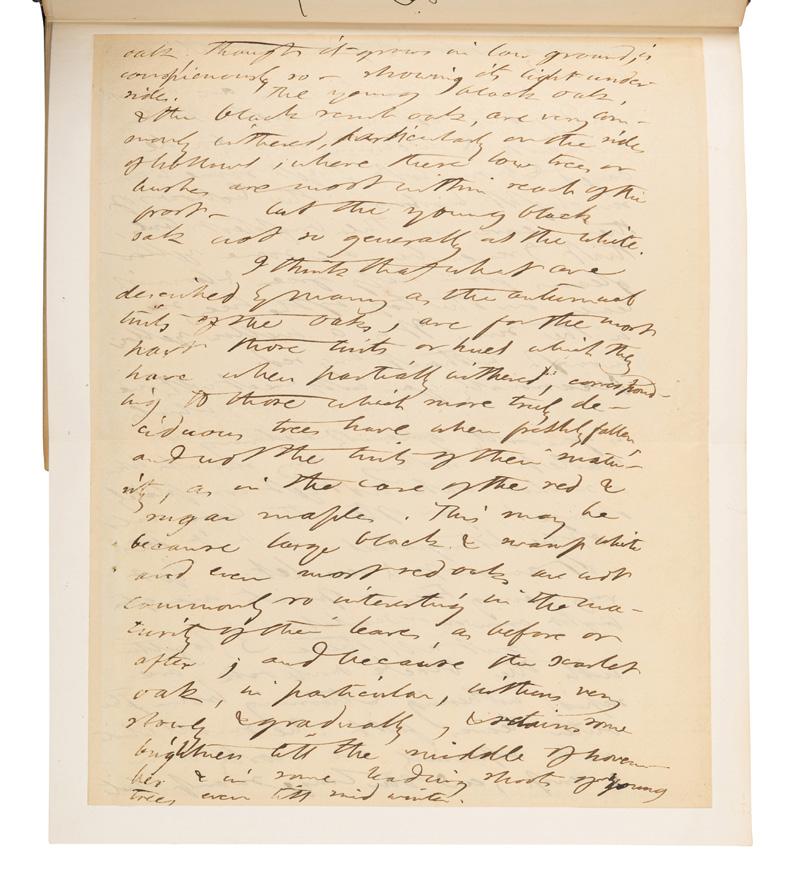 oak. though it grows in low ground, is
conspicuously so – showing its light under
sides. The young black oak,
& the black scrub oak, are very com-
monly withered, particularly on the sides
of hollows, where these low trees or
bushes are most within reach of the
frost – but the young black
oak not so generally as the white.
I think that what are
described by many as the autumnal
tints of the oaks, are for the most
part those tints or hues which they
have when partially withered, correspond-
ing to those which more truly de-
ciduous trees have when freshly fallen,
and not the tints of their matu-
rity, as in the case of the red &
sugar maples. This may be
because large black & swamp white
and even most red oaks are not
commonly so interesting in the ma-
turity of their leaves as before or
after; and because the scarlet
oak, in particular, withers very
slowly & gradually, & retains some
brightness till the middle of novem-
ber & in some leading shoots of young
trees even till mid winter.